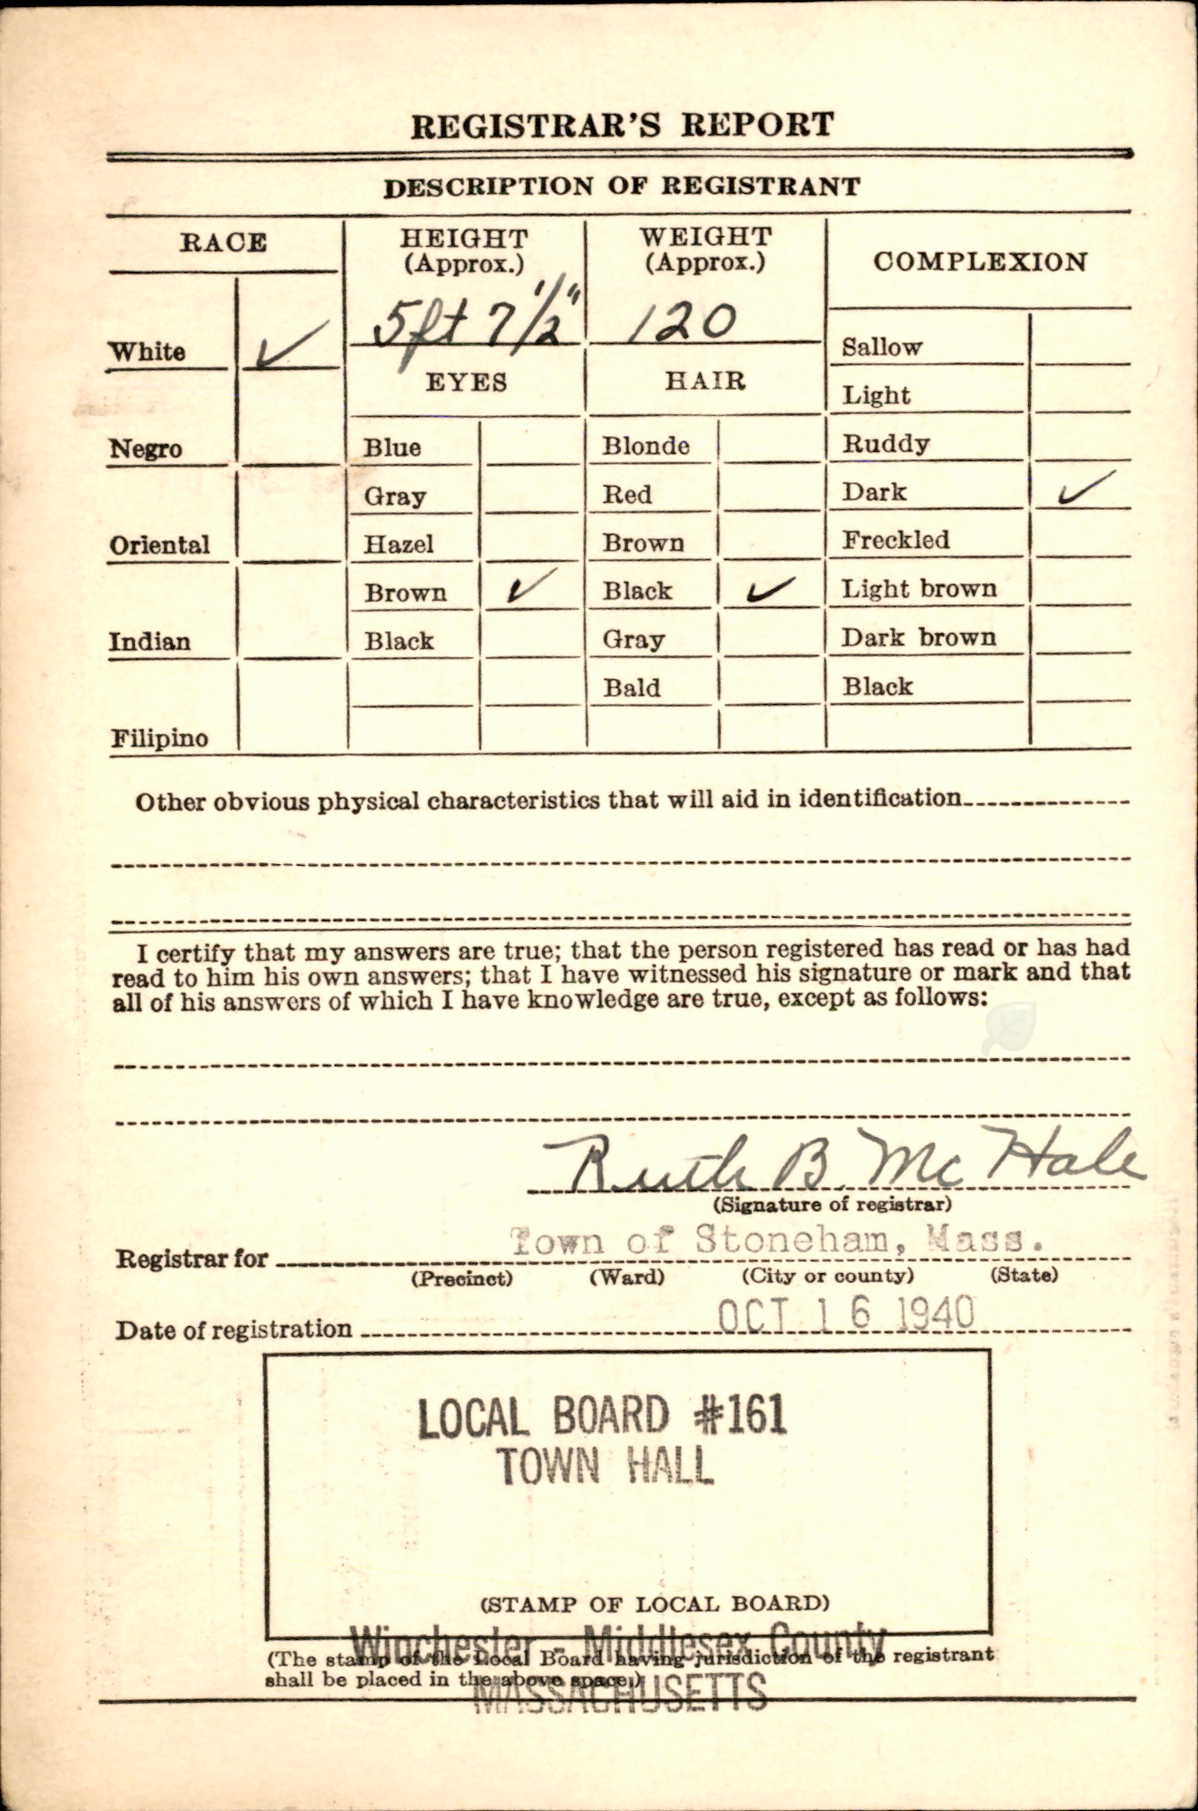 REGISTRAR'S REPORT
DESCRIPTION OF REGISTRANT
RACE
White ✓
Negro
Oriental
Indian
Filipino
HEIGHT
(Approx.)
5 ft 7 1/2"
WEIGHT
(Approx.)
120
EYES
Blue
Gray
Hazel
Brown ✓
Black
HAIR
Blonde
Red
Brown
Black ✓
Gray
Bald
COMPLEXION
Sallow
Light
Ruddy
Dark ✓
Freckled
Light brown
Dark brown
Black
Other obvious physical characteristics that will aid in identification
I certify that my answers are true; that the person registered has read or has had
read to him his own answers; that I have witnessed his signature or mark and that
all of his answers of which I have knowledge are true, except as follows:
Ruth B. McHale
(Signature of registrar)
Registrar for Town of Stoneham, Mass.
(Precinct) (Ward) (City or county) (State)
Date of registration OCT 16 1940
LOCAL BOARD #161
TOWN HALL
(STAMP OF LOCAL BOARD)
Winchester - Middlesex County
(The stamp of the Local Board having jurisdiction of the registrant
shall be placed in the above space.)
MASSACHUSETTS